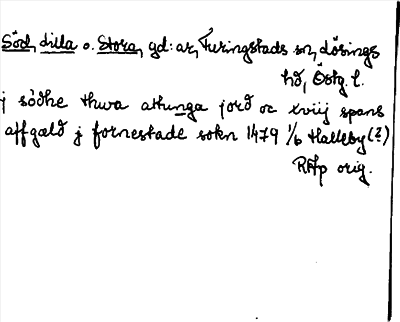 Söd, dilla o. Stora, gd: ar, Furingstads sn, lösings
hd, Östg. l.
j södhe thwa attunga jord oc xviij spans
affgæld j fornestade sokn 1479 1/6 Halleby (?)
RAp orig.